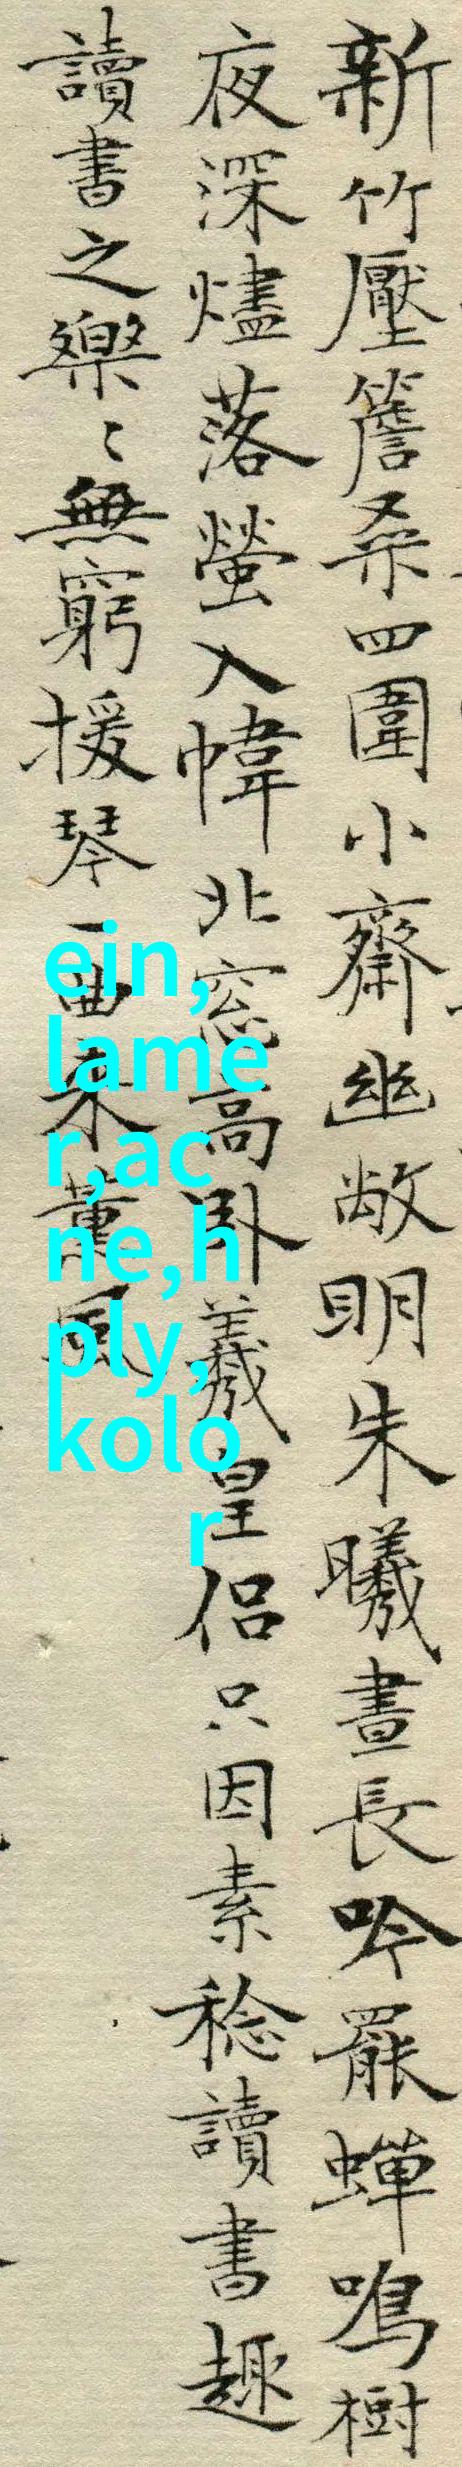 新竹壓簷桑四圍小齋幽敞明朱曦晝長吟罷蟬鳴樹
夜深燼落螢入幃北窓高卧羲皇侣只因素稔讀書趣
讀書之樂〻無窮援琴一曲來薰風
ein,
lame
r,ac
ne,h
ply,
kolo
r